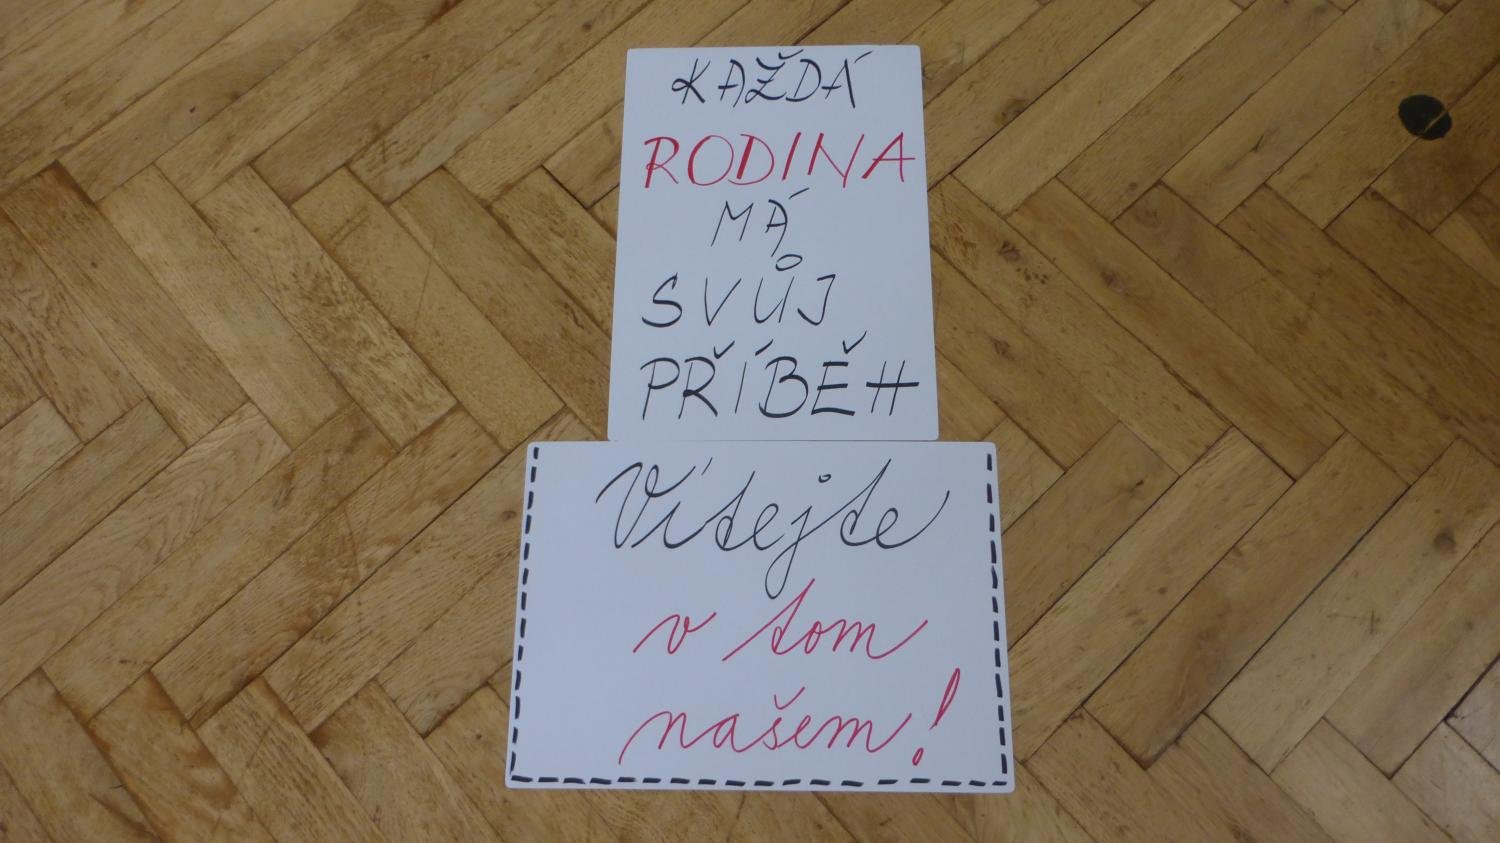 KAŽDÁ
RODINA
MÁ
SVŮJ
PŘÍBĚH
Vítejte
v tom
našem!